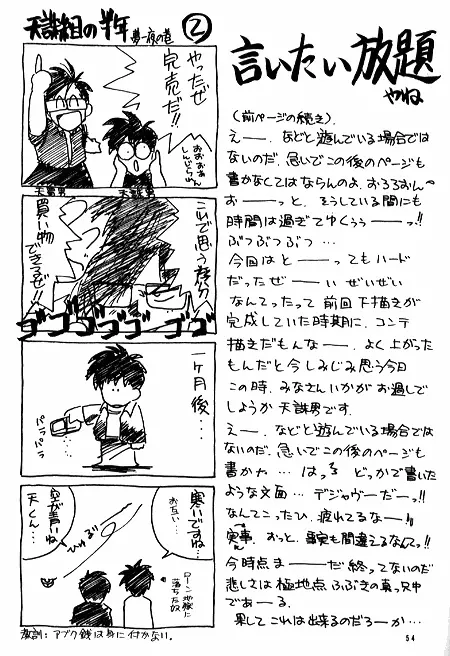 天誅組の半年
夢一夜の巻
②
やったぜ
完売だ!!
おおおお
しんじられん
天誅男
天誅男
これで思う存分
買い物
できるぜ!!
ゴゴゴゴゴゴ
一ヶ月後・・・
パラパラ
寒いですね…
お互い…
空が青いね
天くん…
ひゅるる
ローン地獄に
落ちた奴
教訓:アブク銭は身に付かない。
言いたい放題
やね
(前ページの続き)。
えー―。などと遊んでいる場合では
ないのだ。急いでこの後のページも
書かなくてはならんのよ。おろろおん
おー―っと、そうしている間にも
時間は過ぎてゆくぅぅー―っ!!
ぶつぶつぶつ…
今回はとー―ってもハード
だったぜー―ぃ ぜいぜい
なんてったって 前回下描きが
完成していた時期に、コンテ
描きだもんなー―。よく上がった
もんだと今しみじみ思う今日
この時、みなさんいかがお過しで
しょうか 天誅男です。
えー―。などと遊んでいる場合では
ないのだ。急いでこの後のページも
書かね…はっ どっかで書いた
ような文面…デジャヴーだーっ!!
なんてこったひ、疲れてるなー―!!
実事。おっと、事実も間違えるなんてっ!!
今時点まー―だ終ってないのだ
悲しさは極地点ふぶきの真っ只中
であーる。
果して これは出来るのだろーか…
54